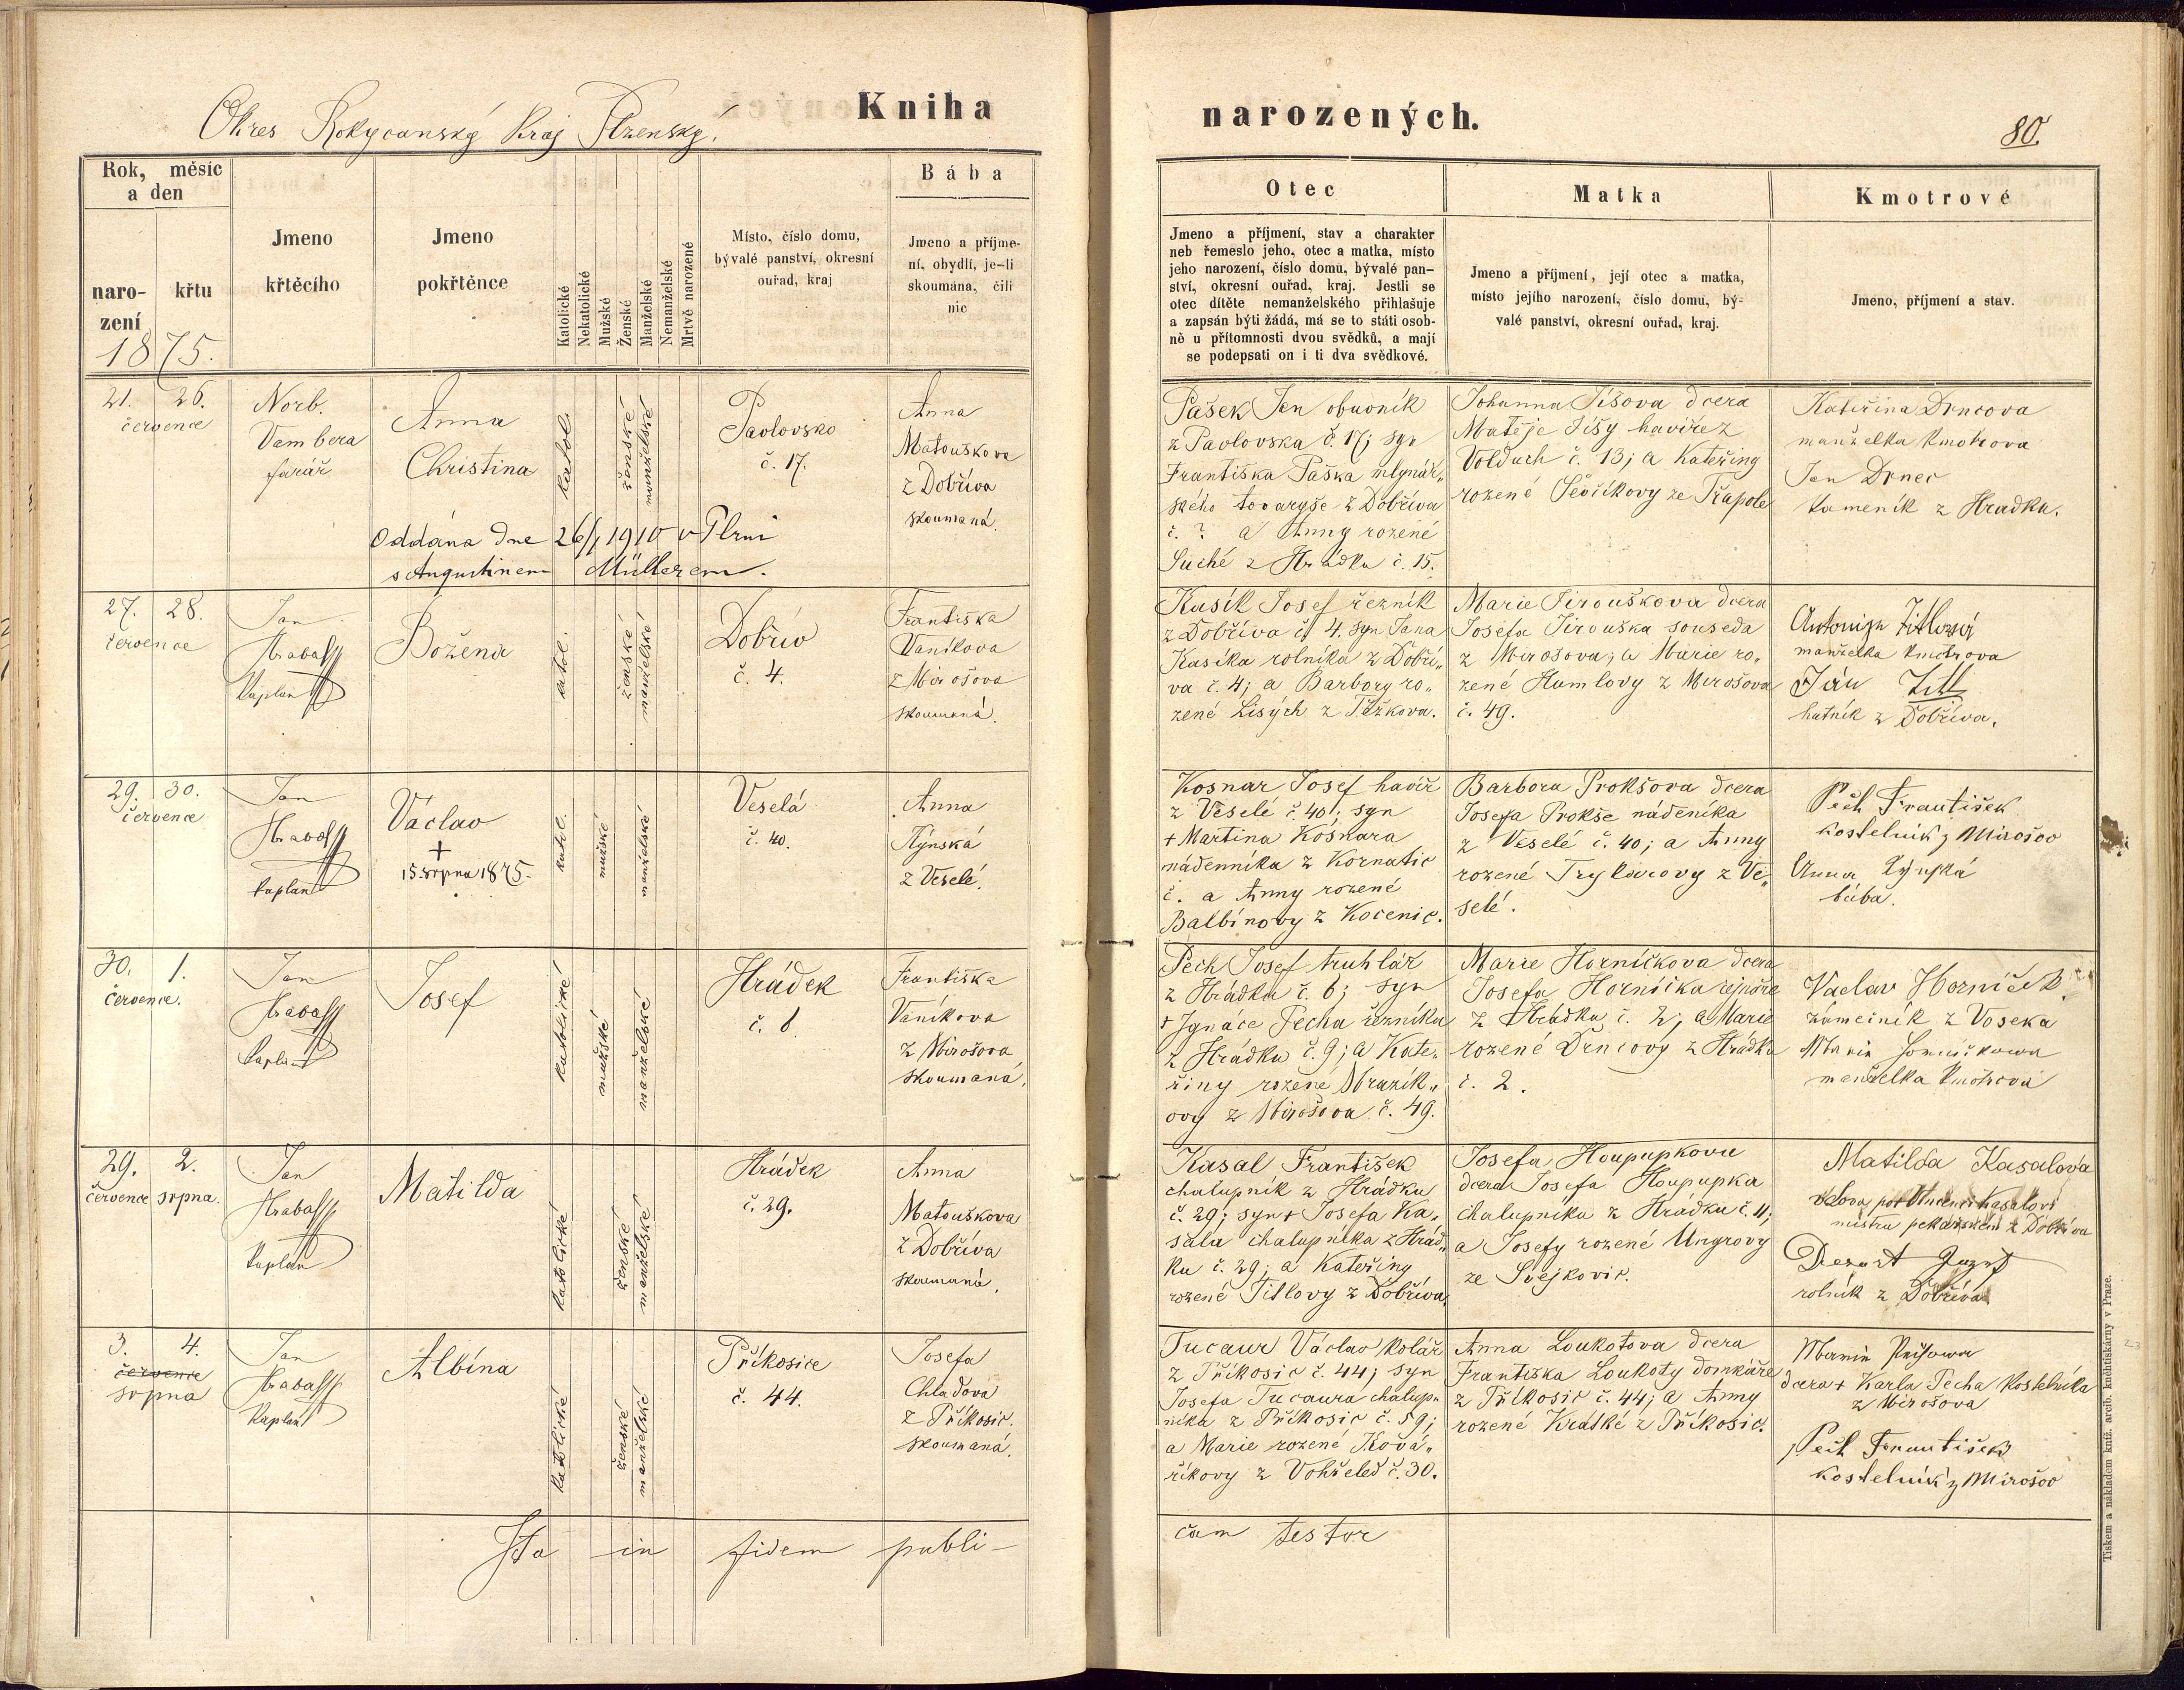 Okres Rokycanský Kraj Plzenský.
Kniha
narozených.
80.
Rok, měsíc
a den
naro-
zení
křtu
1875.
Jmeno
křtěcího
Jmeno
pokřtěnce
Katolické
Nekatolické
Mužské
Ženské
Manželské
Nemanželské
Mrtvě narozené
Místo, číslo domu,
bývalé panství, okresní
ouřad, kraj
Bába
Jmeno a příjme-
ní, obydlí, je-li
skoumána, čili
nic
Otec
Jmeno a příjmení, stav a charakter
neb řemeslo jeho, otec a matka, místo
jeho narození, číslo domu, bývalé pan-
ství, okresní ouřad, kraj. Jestli se
otec dítěte nemanželského přihlašuje
a zapsán býti žádá, má se to státi osob-
ně u přítomnosti dvou svědků, a mají
se podepsati on i ti dva svědkové.
Matka
Jmeno a příjmení, její otec a matka,
místo jejího narození, číslo domu, bý-
valé panství, okresní ouřad, kraj.
Kmotrové
Jmeno, příjmení a stav.
21. 26.
července
Norb.
Vambera
farář
Anna
Christina
katol.
ženské
manželské
Pavlovsko
č. 17.
Anna
Matouškova
z Dobříva
skoumaná.
Oddána dne 26/1 1910 v Plzni
s Augustinem Müllerem.
Pašek Jan obuvník
z Pavlovska č. 17; syn
Františka Paška mlynář„
ského tovaryše z Dobříva
č. ? a Anny rozené
Suché z Hrádku č. 15.
Johanna Síšova dcera
Matěje Síšy havíře z
Volduch č. 13; a Kateřiny
rozené Ševčíkovy ze Třapole
Kateřina Drncova
manželka kmotrova
Jan Drnec
kameník z Hradku.
27. 28.
července
Jan
Hrabal
Kaplan
Božena
katol.
ženské
manželské
Dobřív
č. 4.
Františka
Vaníkova
z Mirošova
skoumaná.
Kusík Josef řezník
z Dobříva č. 4. syn Jana
Kasíka rolníka z Dobří„
va č. 4; a Barbory ro„
zené Lisých z Těžkova.
Marie Jirouškova dcera
Josefa Jirouška souseda
z Mirošova; a Marie ro„
zené Humlovy z Mirošova
č. 49.
Antonije Titlová
manželka kmotrova
Ján Titl
hutník z Dobříva.
29. 30.
července
Jan
Hrabal
kaplan
Václav
+
15. srpna 1875.
katol.
mužské
manželské
Veselá
č. 40.
Anna
Týnská
z Veselé.
Kosnar Josef havíř
z Veselé č. 40; syn
+ Martina Kosnara
nádenníka z Kornatic
č. a Anny rozené
Balbínovy z Kocenic.
Barbora Prokšova dcera
Josefa Prokše nádeníka
z Veselé č. 40; a Anny
rozené Trylčovovy z Ve„
selé.
Pech František
kostelník z Mirošov
Anna Týnská
bába.
30. 1.
července.
Jan
Hrabal
Kaplan
Josef
katolické
mužské
manželské
Hrádek
č. 6
Františka
Vaníkova
z Mirošova
skoumaná.
Pech Josef truhlář
z Hrádku č. 6; syn
+ Ignáce Pecha řezníka
z Hrádku č. 9; a Kate„
řiny rozené Mrazík„
ovy z Mirošova č. 49.
Marie Horníčkova dcera
Josefa Horníčka
z Hrádku č. 2; a Marie
rozené Drncovy z Hrádku
č. 2.
Vaclav Horníček
zámečník z Voseka
Marie Horníčkowa
manželka kmotrová
29. 2.
července srpna.
Jan
Hrabal
Kaplan
Matilda
katolické
ženské
manželské
Hrádek
č. 29.
Anna
Matouškova
z Dobříva
skoumaná.
Kasal František
chalupník z Hrádku
č. 29; syn + Josefa Ka„
sala chalupníka z Hrád„
ku č. 29; a Kateřiny
rozené Titlovy z Dobříva.
Josefa Houpupkova
dcera Josefa Houpupka
chalupníka z Hrádku č. 11;
a Josefy rozené Ungrovy
ze Svejkovic.
Matilda Kasalova
vdova po Vincenci Kasalovi
mistru pekařském z Dobříva
Desort Josef
rolník z Dobříva
3. 4.
července
srpna
Jan
Hrabal
Kaplan
Albína
katolické
ženské
manželské
Příkosice
č. 44.
Josefa
Chladova
z Příkosic.
skoumaná.
Tucaur Václav kolář
z Příkosic č. 44; syn
Josefa Tucaura chalup„
níka z Příkosic č. 59;
a Marie rozené Ková„
říkovy z Vohřeled č. 30.
Anna Loukotova dcera
Františka Loukoty domkáře
z Příkosic č. 44; a Anny
rozené Krátké z Příkosic.
Marie Pechowa
dcera + Karla Pecha kostelníka
z Mirošova
Pech František
kostelník z Mirošov
Ita in fidem publi-
cam testor
Tiskem a nákladem kníž. arcib. kněhtiskárny v Praze.